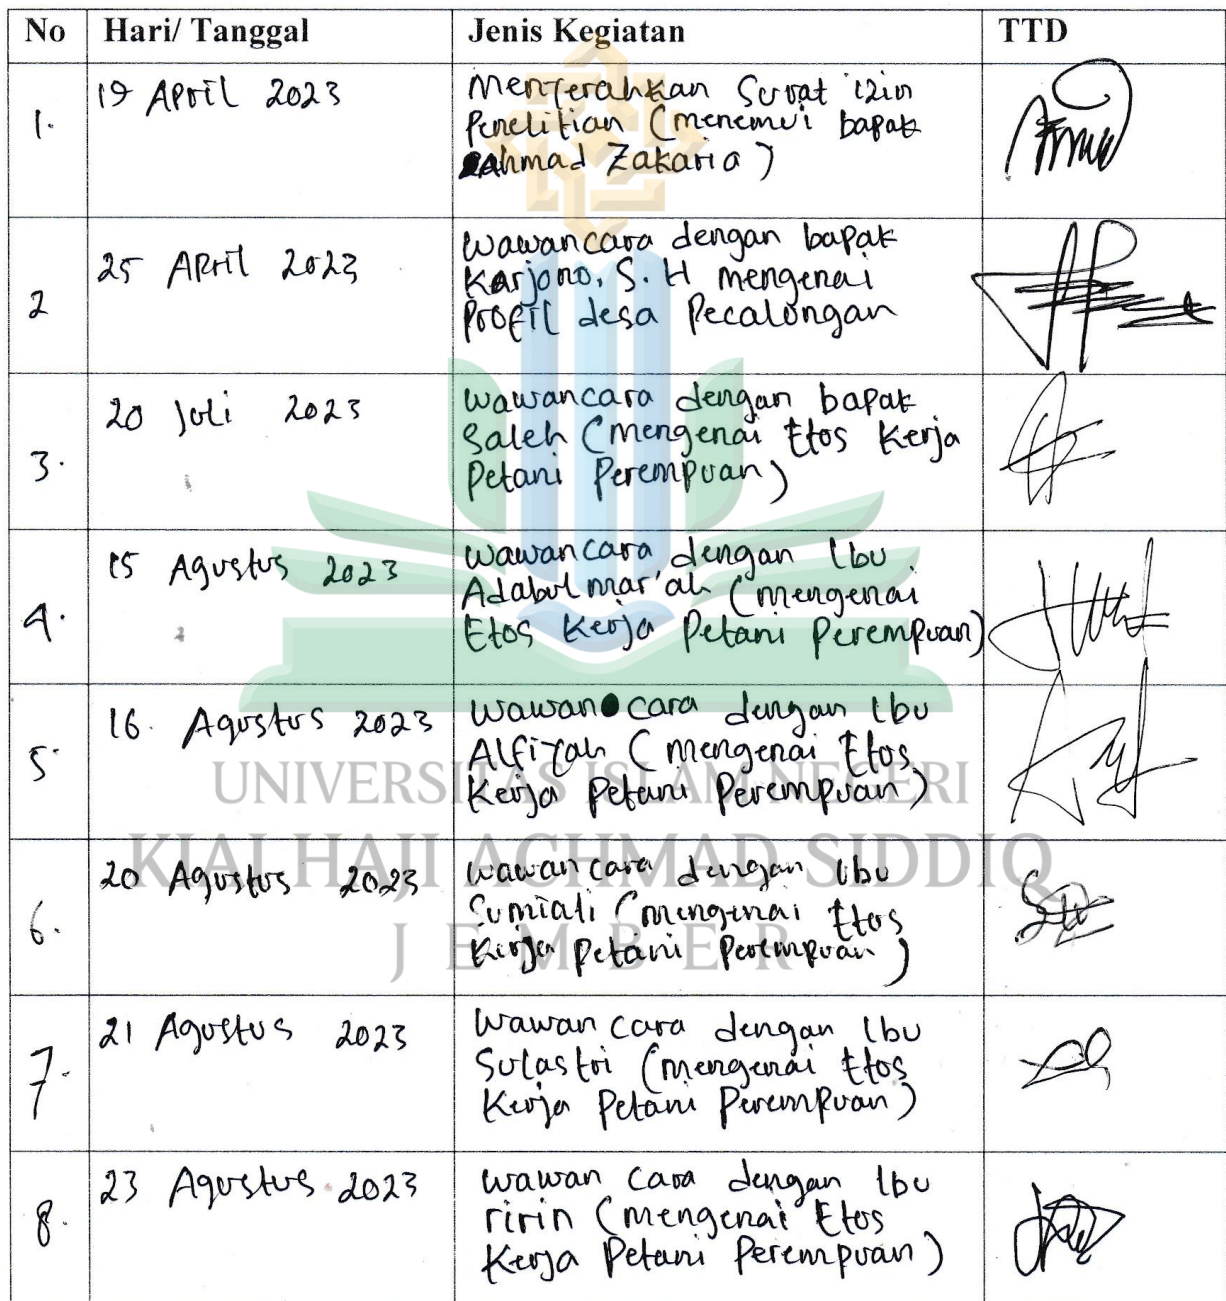 No Hari/ Tanggal Jenis Kegiatan TTD
1. 19 April 2023 Menyerahkan Surat izin
Penelitian (menemui bapak
Ahmad Zakaria)
2 25 April 2023 Wawancara dengan bapak
Karjono, S.H mengenai
Profil desa Pecalongan
3. 20 Juli 2023 Wawancara dengan bapak
Saleh (Mengenai Etos Kerja
Petani Perempuan)
4. 15 Agustus 2023 Wawancara dengan Ibu
Adabul mar'ah (mengenai
Etos Kerja Petani Perempuan)
5. 16. Agustus 2023 Wawancara dengan Ibu
Alfiyah (mengenai Etos
Kerja Petani Perempuan)
UNIVERSITAS ISLAM NEGERI
KIAI HAJI ACHMAD SIDDIQ
JEMBER
6. 20 Agustus 2023 Wawancara dengan Ibu
Sumiati (mengenai Etos
Kerja Petani Perempuan)
7. 21 Agustus 2023 Wawancara dengan Ibu
Sulastri (mengenai Etos
Kerja Petani Perempuan)
8. 23 Agustus 2023 Wawancara dengan Ibu
ririn (mengenai Etos
Kerja Petani Perempuan)